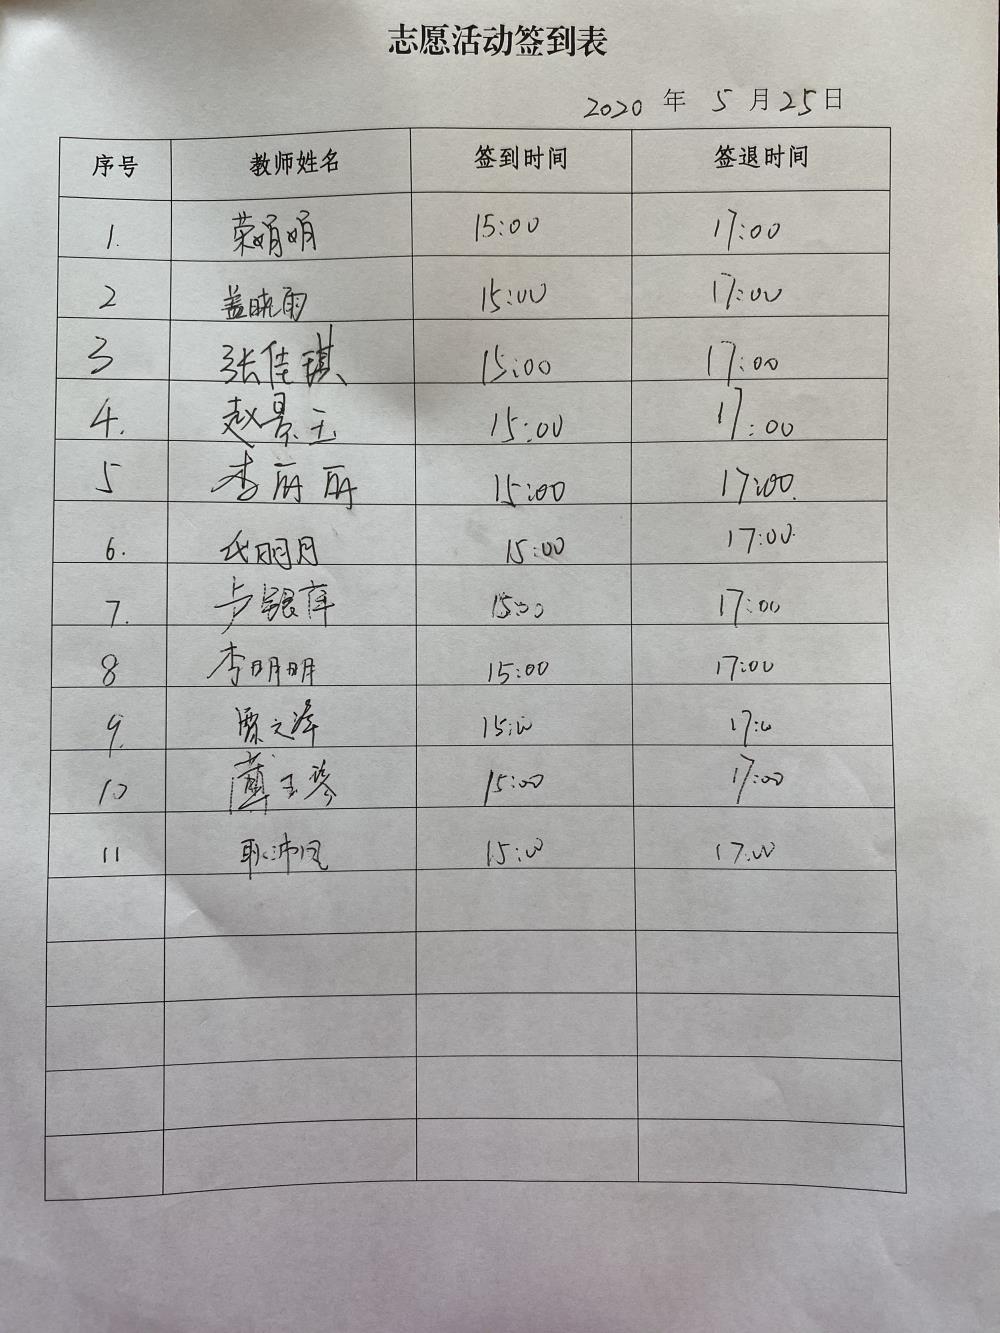 志愿活动签到表
2020 年 5 月 25 日
序号 教师姓名 签到时间 签退时间
1. 荣娟娟 15:00 17:00
2 盖晓雨 15:00 17:00
3 张佳琪 15:00 17:00
4. 赵景玉 15:00 17:00
5 李丽丽 15:00 17:00.
6. 代明月 15:00 17:00
7. 卢银萍 15:00 17:00
8 李明明 15:00 17:00
9. 之 15:00 17:00
10 玉琴 15:00 17:00
11 耿沛风 15:00 17:00